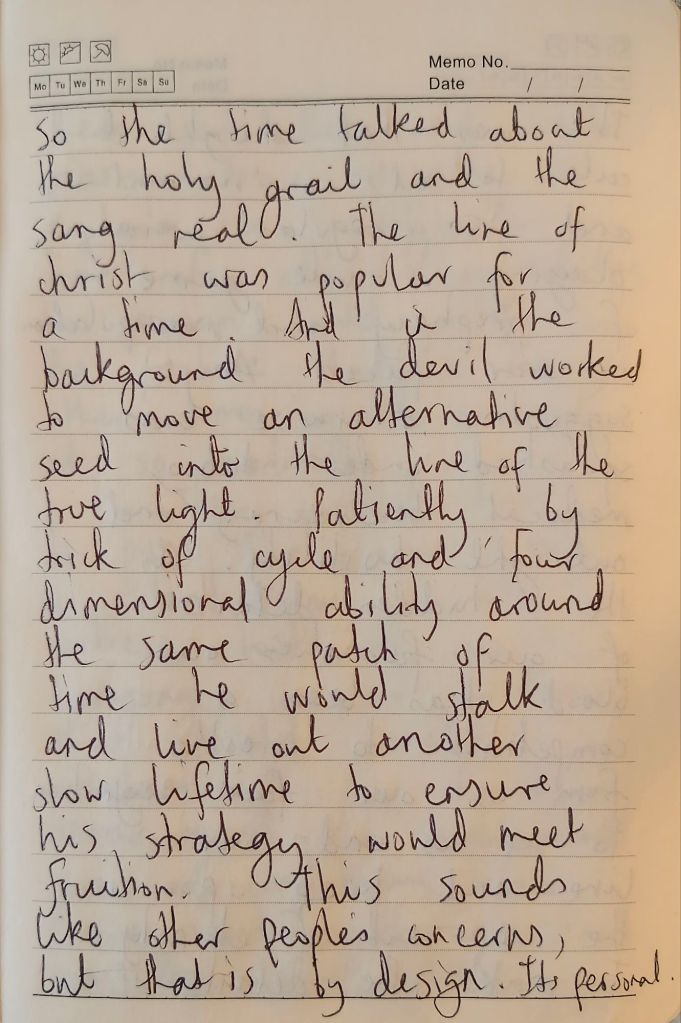 Memo No.
Mo Tu We Th Fr Sa Su
Date / /
So the time talked about
the holy grail and the
sang real. The line of
christ was popular for
a time. And in the
background the devil worked
to move an alternative
seed into the line of the
true light. Patiently by
trick of cycle and four
dimensional ability around
the same patch of
time he would stalk
and live out another
slow lifetime to ensure
his strategy would meet
fruition. This sounds
like other people's concerns,
but that is by design. Its personal.